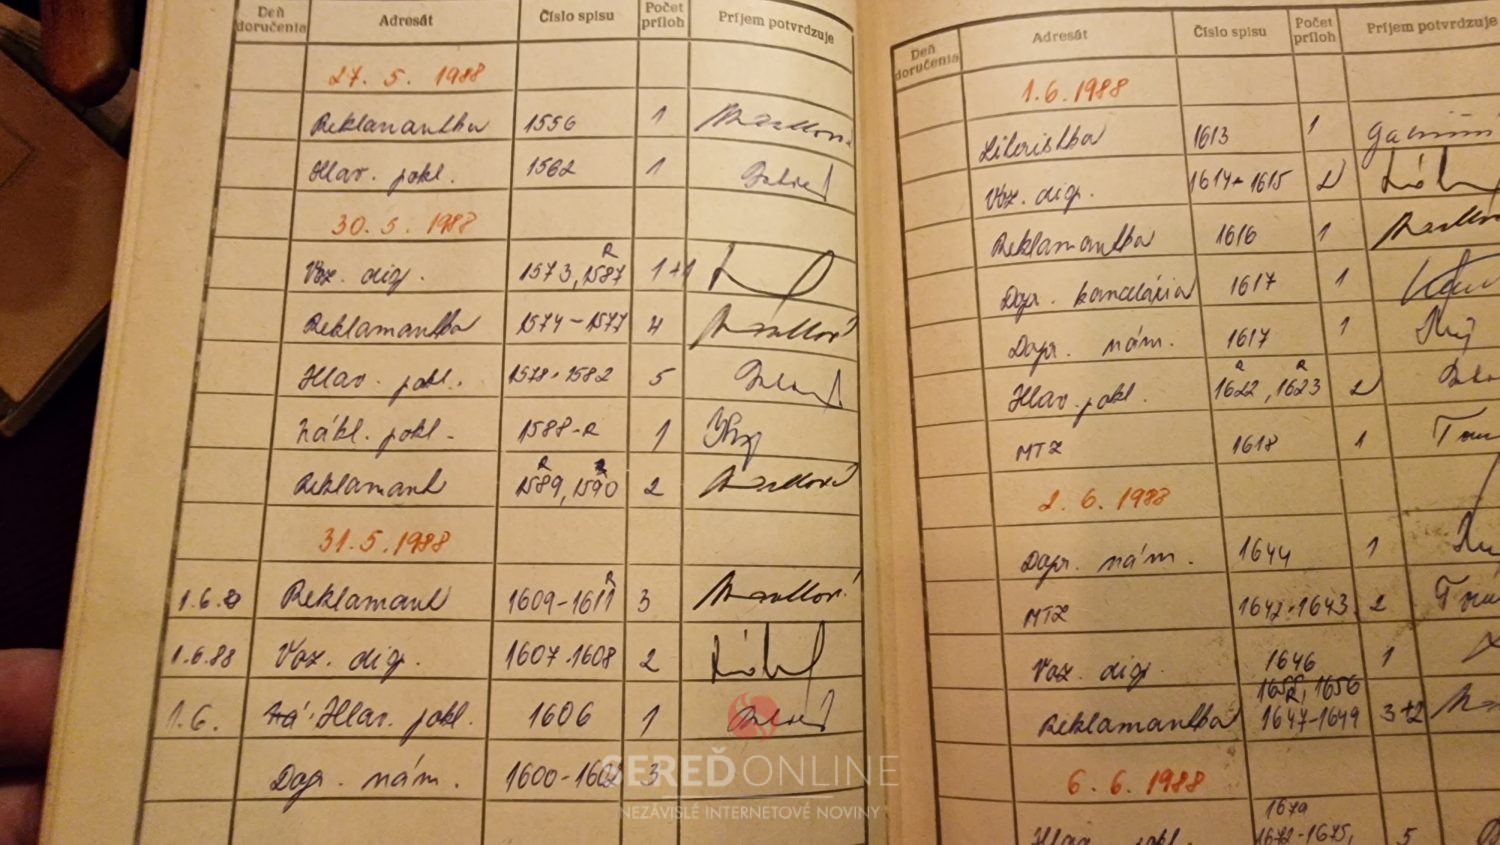 Deň doručenia Adresát Číslo spisu Počet príloh Príjem potvrdzuje
27. 5. 1988
Reklamantka 1556 1
Hlav. pokl. 1562 1
30. 5. 1988
Voz. dig. 1573, 1587 R 1+1
Reklamantka 1574-1577 4
Hlav. pokl. 1578-1582 5
Nákl. pokl. 1588-R 1
Reklamant 1589 R, 1590 R 2
31. 5. 1988
1.6.88 Reklamant 1609-1611 R 3
1.6.88 Voz. dig. 1607-1608 2
1.6. Hlav. pokl. 1606 1
Dopr. nám. 1600-1602 3
Deň doručenia Adresát Číslo spisu Počet príloh Príjem potvrdzuje
1. 6. 1988
1613 1
Voz. dig. 1614+1615 2
Reklamantka 1616 1
Dopr. kancelária 1617 1
Dopr. nám. 1617 1
Hlav. pokl. 1622 R, 1623 R 2
MTZ 1618 1
2. 6. 1988
Dopr. nám. 1644 1
MTZ 1642-1643 2
Voz. dig. 1646 1
1655, 1656
R
Reklamantka 1647-1649 3+2
6. 6. 1988
Hlav. pokl. 1672-1675, 5
SEREĎ ONLINE
NEZÁVISLÉ INTERNETOVÉ NOVINY